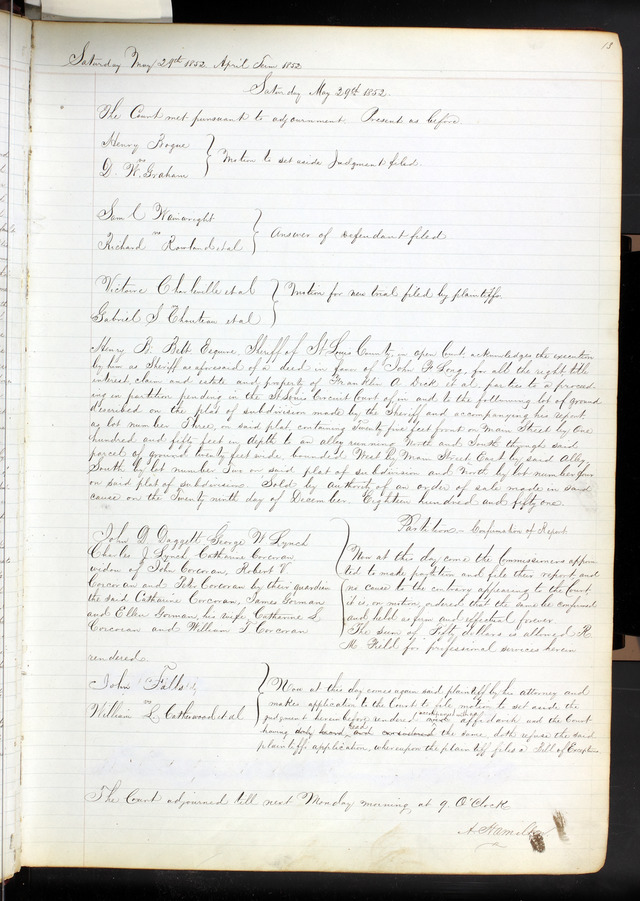 13
Saturday May 29th 1852. April Term 1852
Saturday May 29th 1852.
The Court met pursuant to adjournment. Present as before
Henry Bogue
vs
D. W. Graham
Motion to set aside Judgment filed.
Saml Wainwright
vs
Richard Rowland et al
Answer of defendant filed
Victoire Charleville et al
Gabriel S Chouteau et al
Motion for new trial filed by plaintiffs.
Henry B. Belt Esquire, Sheriff of St Louis County, in open Court, acknowledges the execution
by him as Sheriff as aforesaid of a deed in favor of John P Long, for all the right, title
interest, claim and estate and property of Franklin A. Dick et als. parties to a proceed-
ing in partition pending in the St Louis Circuit Court of, in and to the following lot of ground
described on the plat of subdivision made by the Sheriff and accompanying his report,
as lot number Three, on said plat, containing Twenty five feet front on Main Street by One
hundred and fifty feet in depth to an alley running North and South through said
parcel of ground twenty feet wide, bounded West by Main Street East by said Alley
South by lot number Two on said plat of subdivision and North by lot number four
on said plat of subdivision. Sold by authority of an order of sale made in said
cause on the Twenty ninth day of December. Eighteen hundred and fifty one.
John D Daggett George W Lynch
Charles J Lynch, Catharine Corcoran
widow of John Corcoran, Robert V
Corcoran and John Corcoran by their guardian
the said Catharine Corcoran, James Gorman
and Ellen Gorman, his wife, Catharine L
Corcoran and William T Corcoran
Partition - Confirmation of Report
Now at this day come the Commissioners appoin
ted to make partition and file their report and
no cause to the contrary appearing to the Court
it is, on motion, ordered that the same be confirmed
and held as firm and effectual forever.
The sum of Fifty dollars is allowed R.
M Field for professional services herein
rendered.
John Falls
vs
William L Catherwood et al
Now at this day comes again said plaintiff by his attorney and
makes application to the Court to file motion to set aside the
judgment herein before rendered affidavit and the Court
having duly heard and considered the same, doth refuse the said
plaintiffs application, whereupon the plaintiff files a Bill of Exceptions
The Court adjourned till next Monday morning at 9. O'Clock
A Hamilton